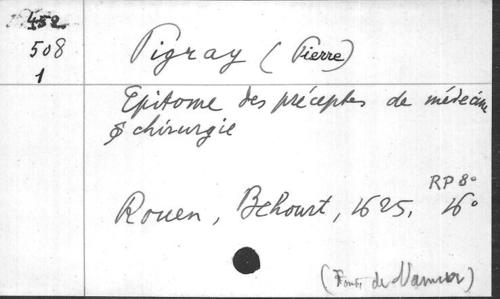 452
508
1
Pigray (Pierre)
Epitome des préceptes de médecine
& chirurgie
RP 8°
Rouen, Behourt, 1625, 16°
(Fonds de Namur)